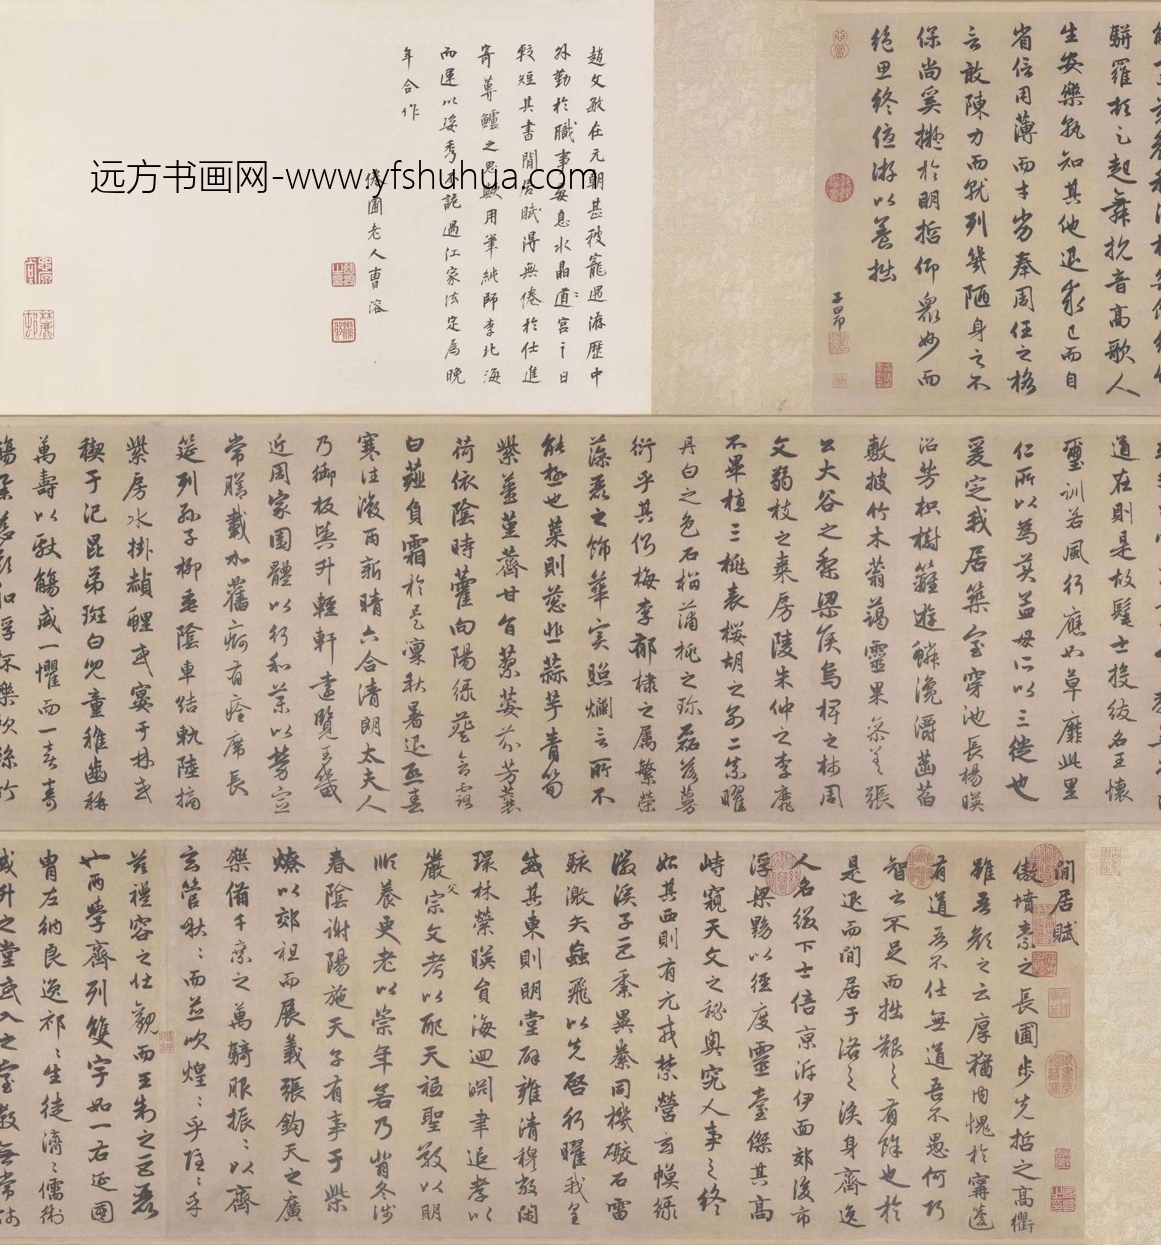 閒居賦
傲墳素之長圃步先哲之高衢
雖吾顏之云厚猶內愧於甯蘧
有道吾不仕無道吾不愚何巧
智之不足而拙艱之有餘也於
是退而閒居于洛之涘身齊逸
人名綴下士倍京泝伊面郊後市
浮梁黝以徑度靈臺傑其高
峙窺天文之秘奧究人事之終
始其西則有元戎禁營玄幙綠
徽溪子巨黍異絭同機礮石雷
駭激矢蝱飛以先啓行曜我皇
威其東則明堂辟雍清穆敞閑
環林縈暎員海迴淵聿追孝以
嚴父宗文考以配天祗聖敬以明
順養更老以崇年若乃背冬涉
春陰謝陽施天子有事于柴
燎以郊祖而展義張鈞天之廣
樂備千乘之萬騎服振〻以齊
玄管啾〻而並吹煌〻乎隱〻乎
茲禮容之壯觀而王制之巨麗
也兩學齊列雙宇如一右延國
胄左納良逸祁〻生徒濟〻儒術
或升之堂或入之室教無常師
道在則是故髦士投紱名王懷
璽訓若風行應如草靡此里
仁所以為美孟母所以三徙也
爰定我居築室穿池長楊暎
沼芳枳樹籬遊鱗瀺灂菡萏
敷披竹木蓊藹靈果參差張
公大谷之梨梁侯烏椑之柿周
文弱枝之棗房陵朱仲之李靡
不畢植三桃表櫻胡之別二柰曜
丹白之色石榴蒲桃之珍磊落蔓
衍乎其側梅李郁棣之屬繁榮
藻麗之飾華實照爛言所不
能極也菜則葱韭蒜芋青筍
紫薑堇薺甘旨蓼荾芬芳蘘
荷依陰時藿向陽綠葵含露
白薤負霜於是凜秋暑退熙春
寒往微雨新晴六合清朗太夫人
乃御板輿升輕軒遠覽王畿
近周家園體以行和藥以勞宣
常膳載加舊痾有痊席長
筵列孫子柳垂陰車結軌陸摘
紫房水掛赬鯉或宴于林或
禊于汜昆弟斑白兒童稚齒稱
萬壽以獻觴咸一懼而一喜壽
觴舉慈顏和浮杯樂飲絲竹
駢羅頓足起舞抗音高歌人
生安樂孰知其他退求己而自
省信用薄而才劣奉周任之格
言敢陳力而就列幾陋身之不
保尚奚擬於明哲仰衆妙而
絕思終優游以養拙
子昂
趙文敏在元朝甚被寵遇游歷中
外勤於職事每息水晶道宮之日
較短其書閒居賦得無倦於仕進
寄蓴鱸之思歟用筆純師李北海
而運以姿秀不詭過江家法定為晚
年合作
倦圃老人曹溶
远方书画网-www.yfshuhua.com